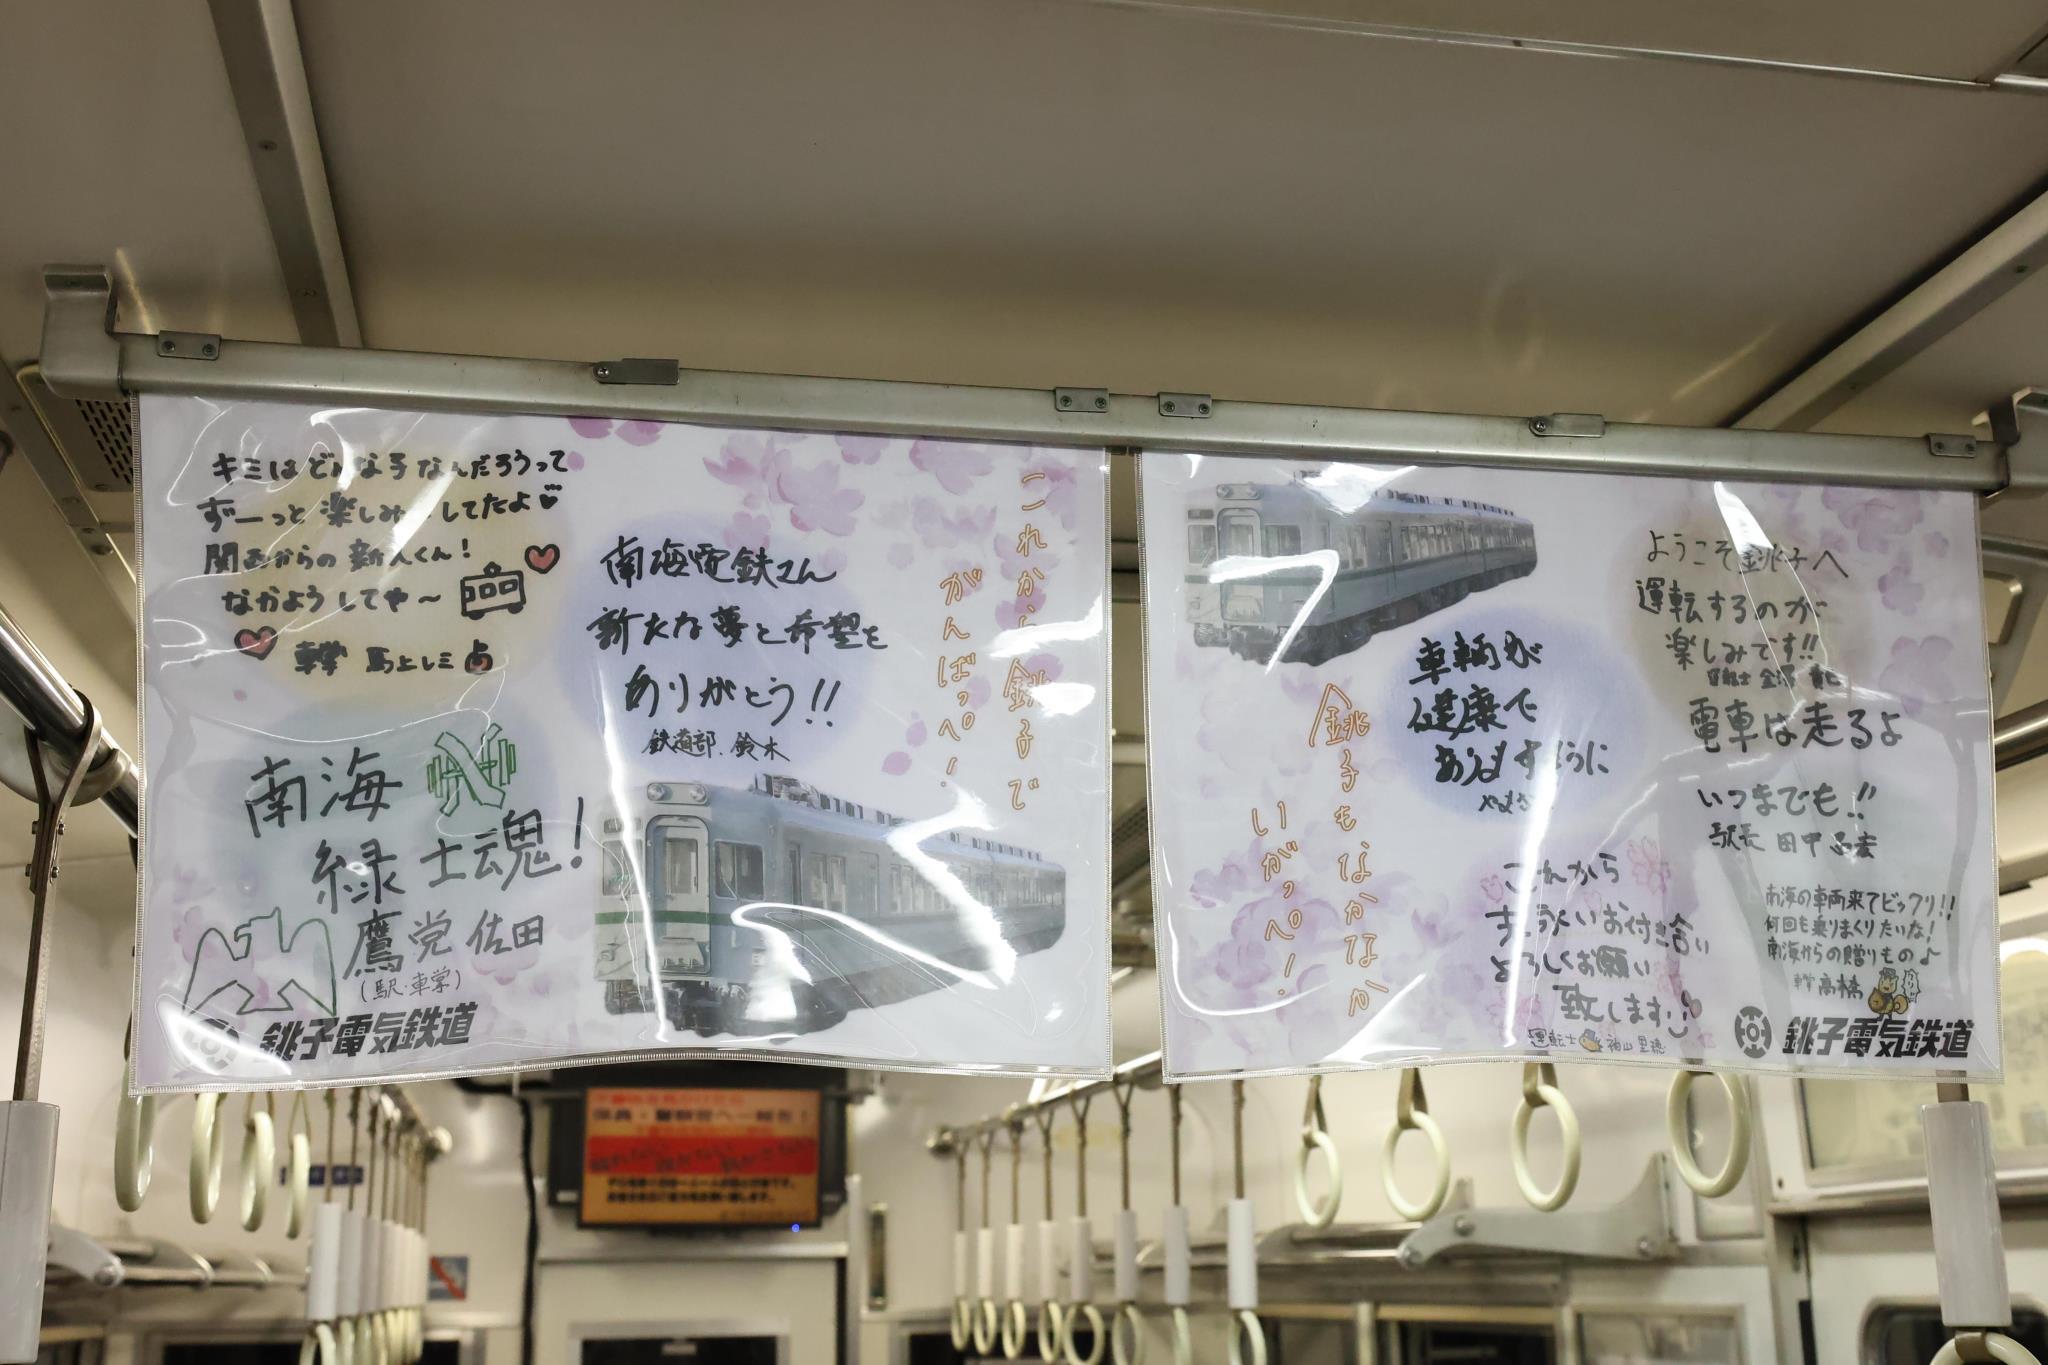 キミはどんな子なんだろうって
ずーっと楽しみにしてたよ
関西からの新人くん！
なかようしてや〜
車掌 馬上レミ
南海電鉄さん
新たな夢と希望を
ありがとう!!
鉄道部.鈴木
これから銚子で
がんばっぺ！
南海
緑士魂！
鷹党 佐田
(駅・車掌)
銚子電気鉄道
車輌が
健康で
ありますように
銚子もなかなか
いがっぺ！
ようこそ銚子へ
運転するのが
楽しみです!!
運転士
電車は走るよ
いつまでも!!
駅長 田中
これから
末永いお付き合い
よろしくお願い
致します
運転士 袖山里穂
南海の車両来てビックリ!!
何回も乗りまくりたいな！
南海からの贈りもの♪
車掌 高橋
銚子電気鉄道